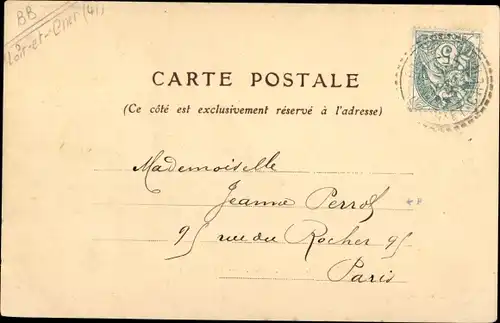 BB
Loir-et-Cher (41)
5
CARTE POSTALE
(Ce côté est exclusivement réservé à l'adresse)
Mademoiselle
Jeanne Perrot
95 rue du Rocher 95
Paris